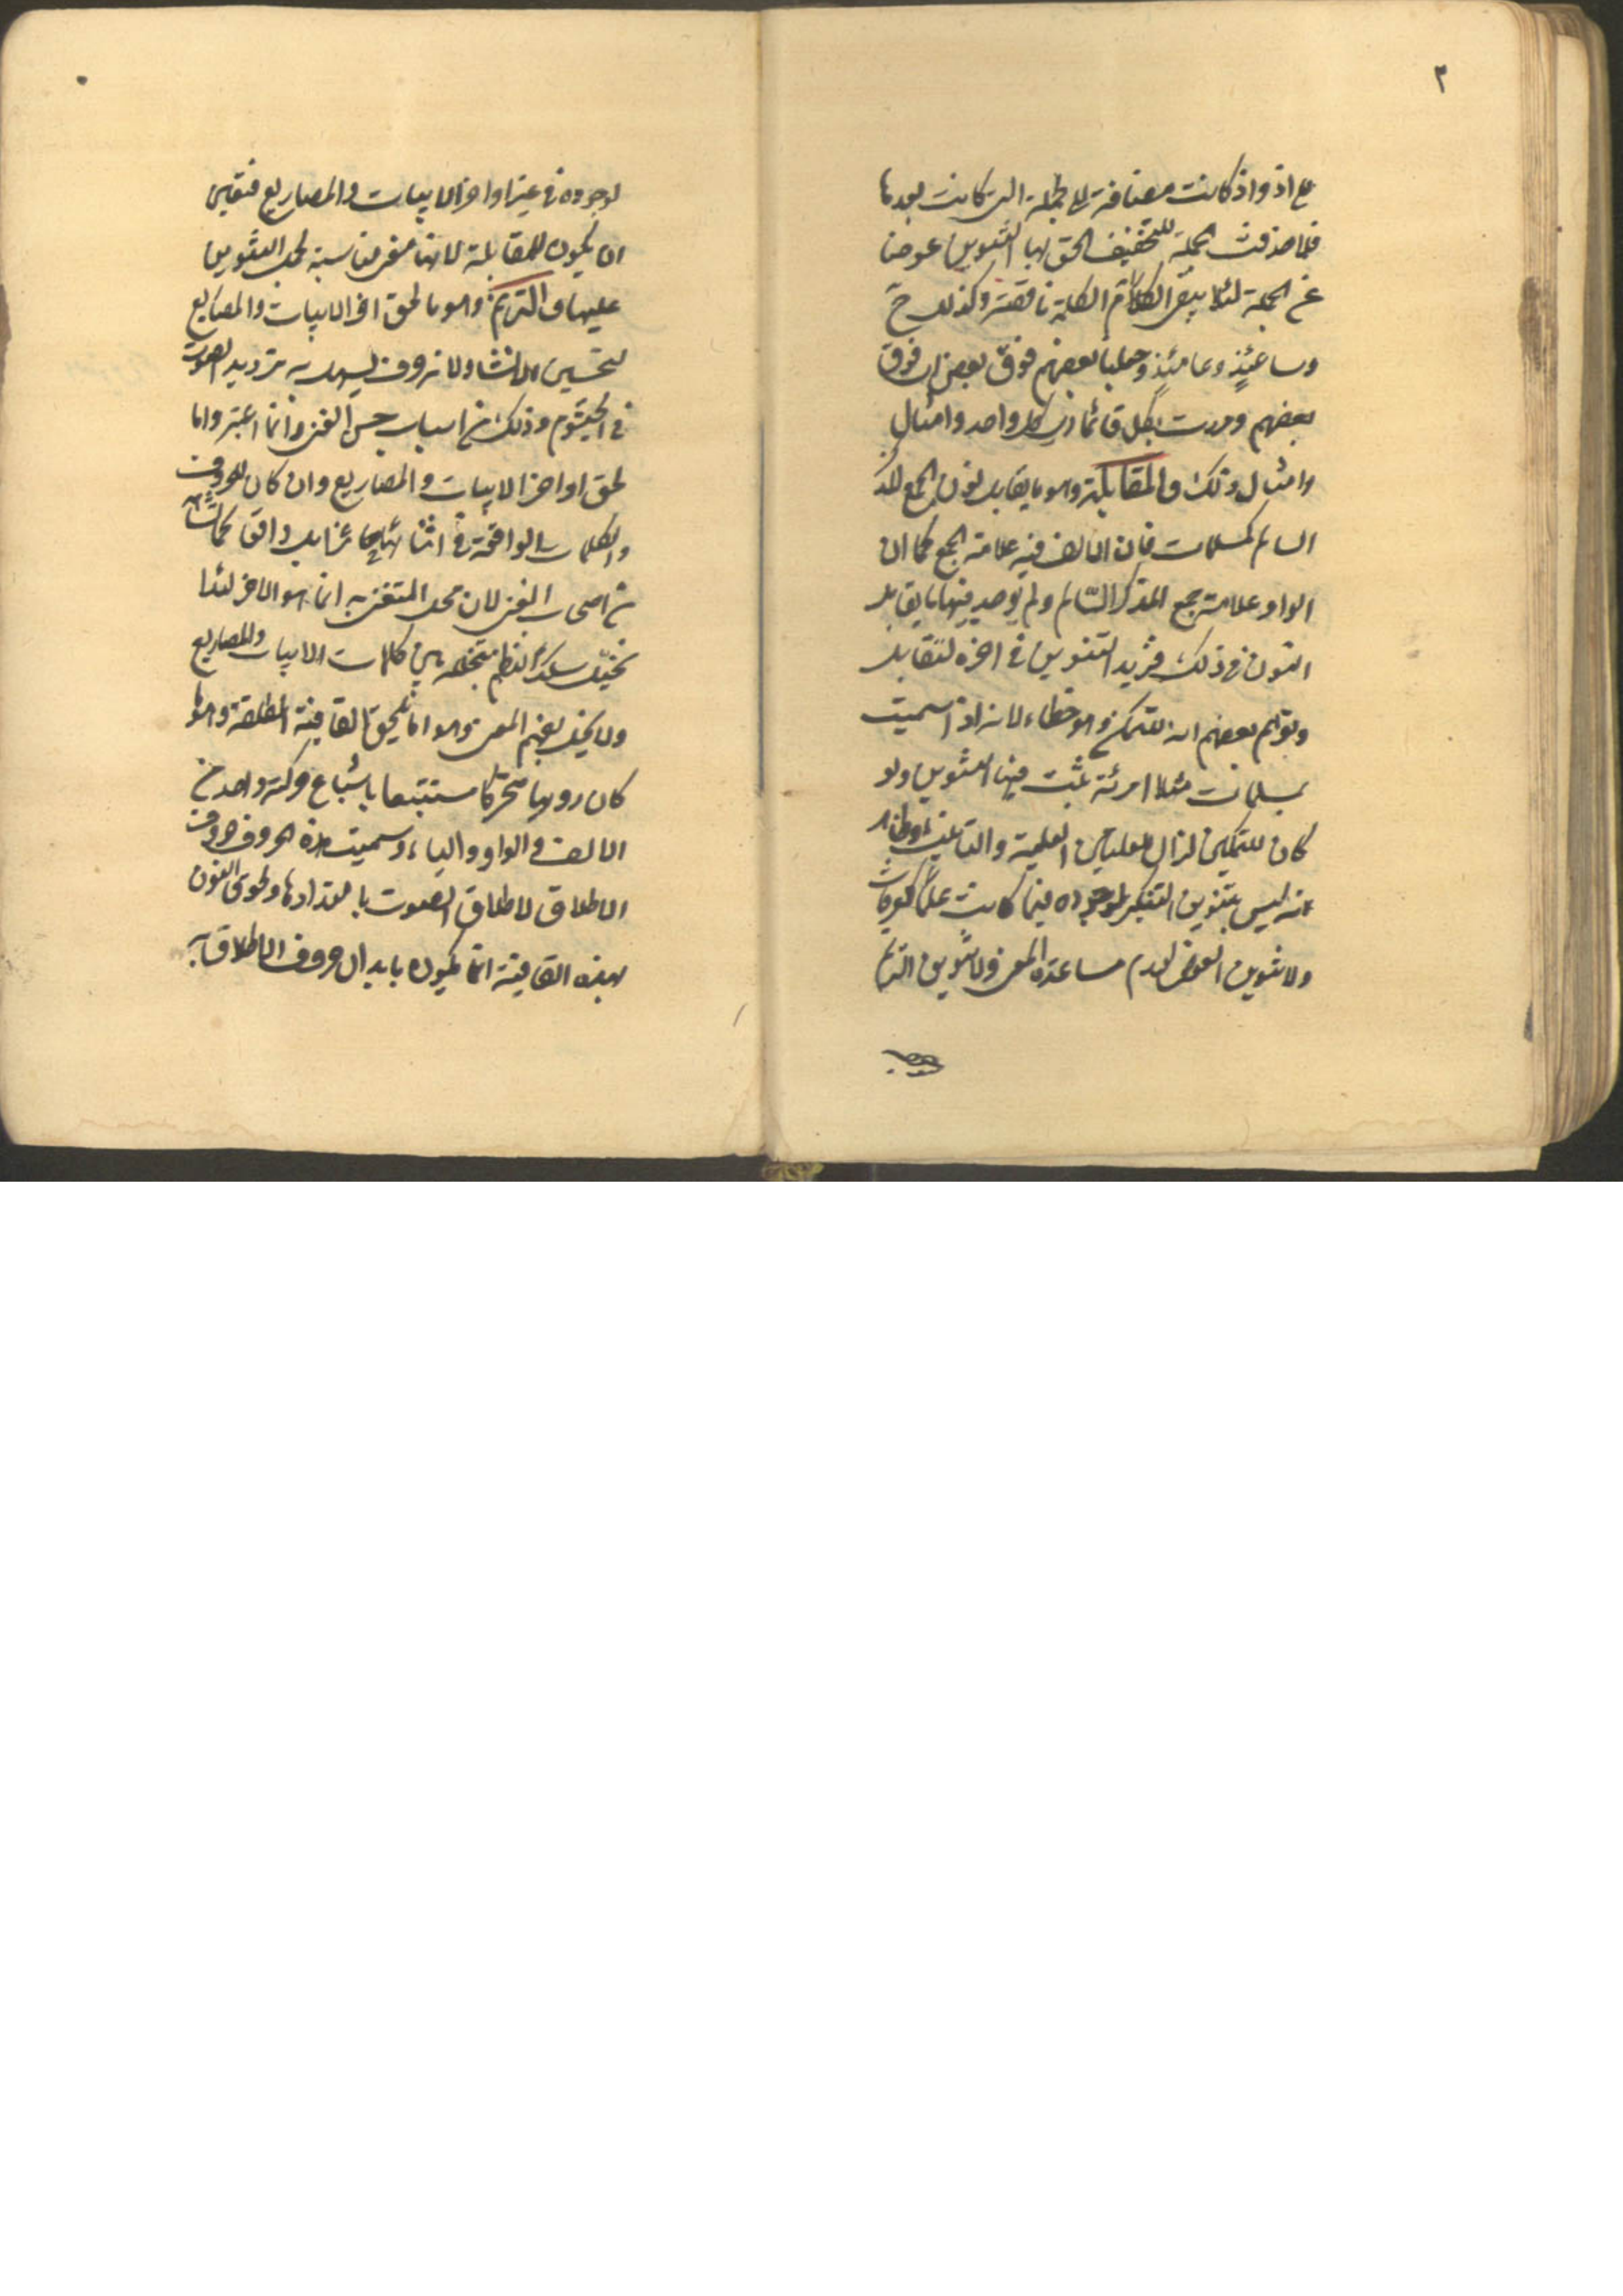 ٢
على اذ واذ كانت مضافة الى الجملة التى كانت بعدها
فلما حذفت الجملة للتخفيف الحق بها التنوين عوضا
عن الجملة لئلا يبقى الكلمة ناقصة وكذلك ح
وساعتئذ وعامئذ وجعلنا بعضهم فوق بعض اى فوق
بعضهم ومررت بكل قائما اى بكل واحد وامثال
وامثال ذلك والمقابلة وهو ما يقابل نون الجمع المذكر
السالم كمسلمات فان الالف فيه علامة الجمع كما ان
الواو علامة جمع المذكر السالم ولم يوجد فيها ما يقابل
النون فى ذلك فزيد التنوين فى اخره لتقابل
وتوهم بعضهم انه للتمكن وهو خطاء لانه اذا سميت
بمسلمات مثلا امرئة تثبت فيها التنوين ولو
كان للتمكين لزال للعلتين العلمية والتانيث وظاهر
انه ليس بتنوين التنكير لوجوده فيما كانت علما كعرفات
ولا تنوين العوض لعدم مساعدة المعنى ولا تنوين الترنم
لوجوده فى غير اواخر الابيات والمصاريع فتعين
ان يكون للمقابلة لانها معنى مناسبة لحمل التنوين
عليها والترنم وهو ما لحق اخر الابيات والمصاريع
لتحسين الانشاد لانه حرف يسهل به ترديد الصوت
فى الخيشوم وذلك من اسباب حسن الغنى وانما اعتبروا ما
لحق اواخر الابيات والمصاريع وان كان للحروف
والكلمات الواقعة فى اثنائها
من اصحاب الغنى لان محل المتغنى به انما هو الاخر لئلا
يختل سلك النظم بتخلله بين كلمات الابيات والمصاريع
ولا يخل بفهم المعنى وهو اما يلحق القافية المطلقة وهو ما
كان رويها متحركا مستتبعا باشباع حركته واحدا من
الالف والواو والياء وسميت هذه الحروف حروف
الاطلاق لاطلاق الصوت بامتدادها ولحوق التنون
بهذه القافية انما يكون بابدال حروف الاطلاق به